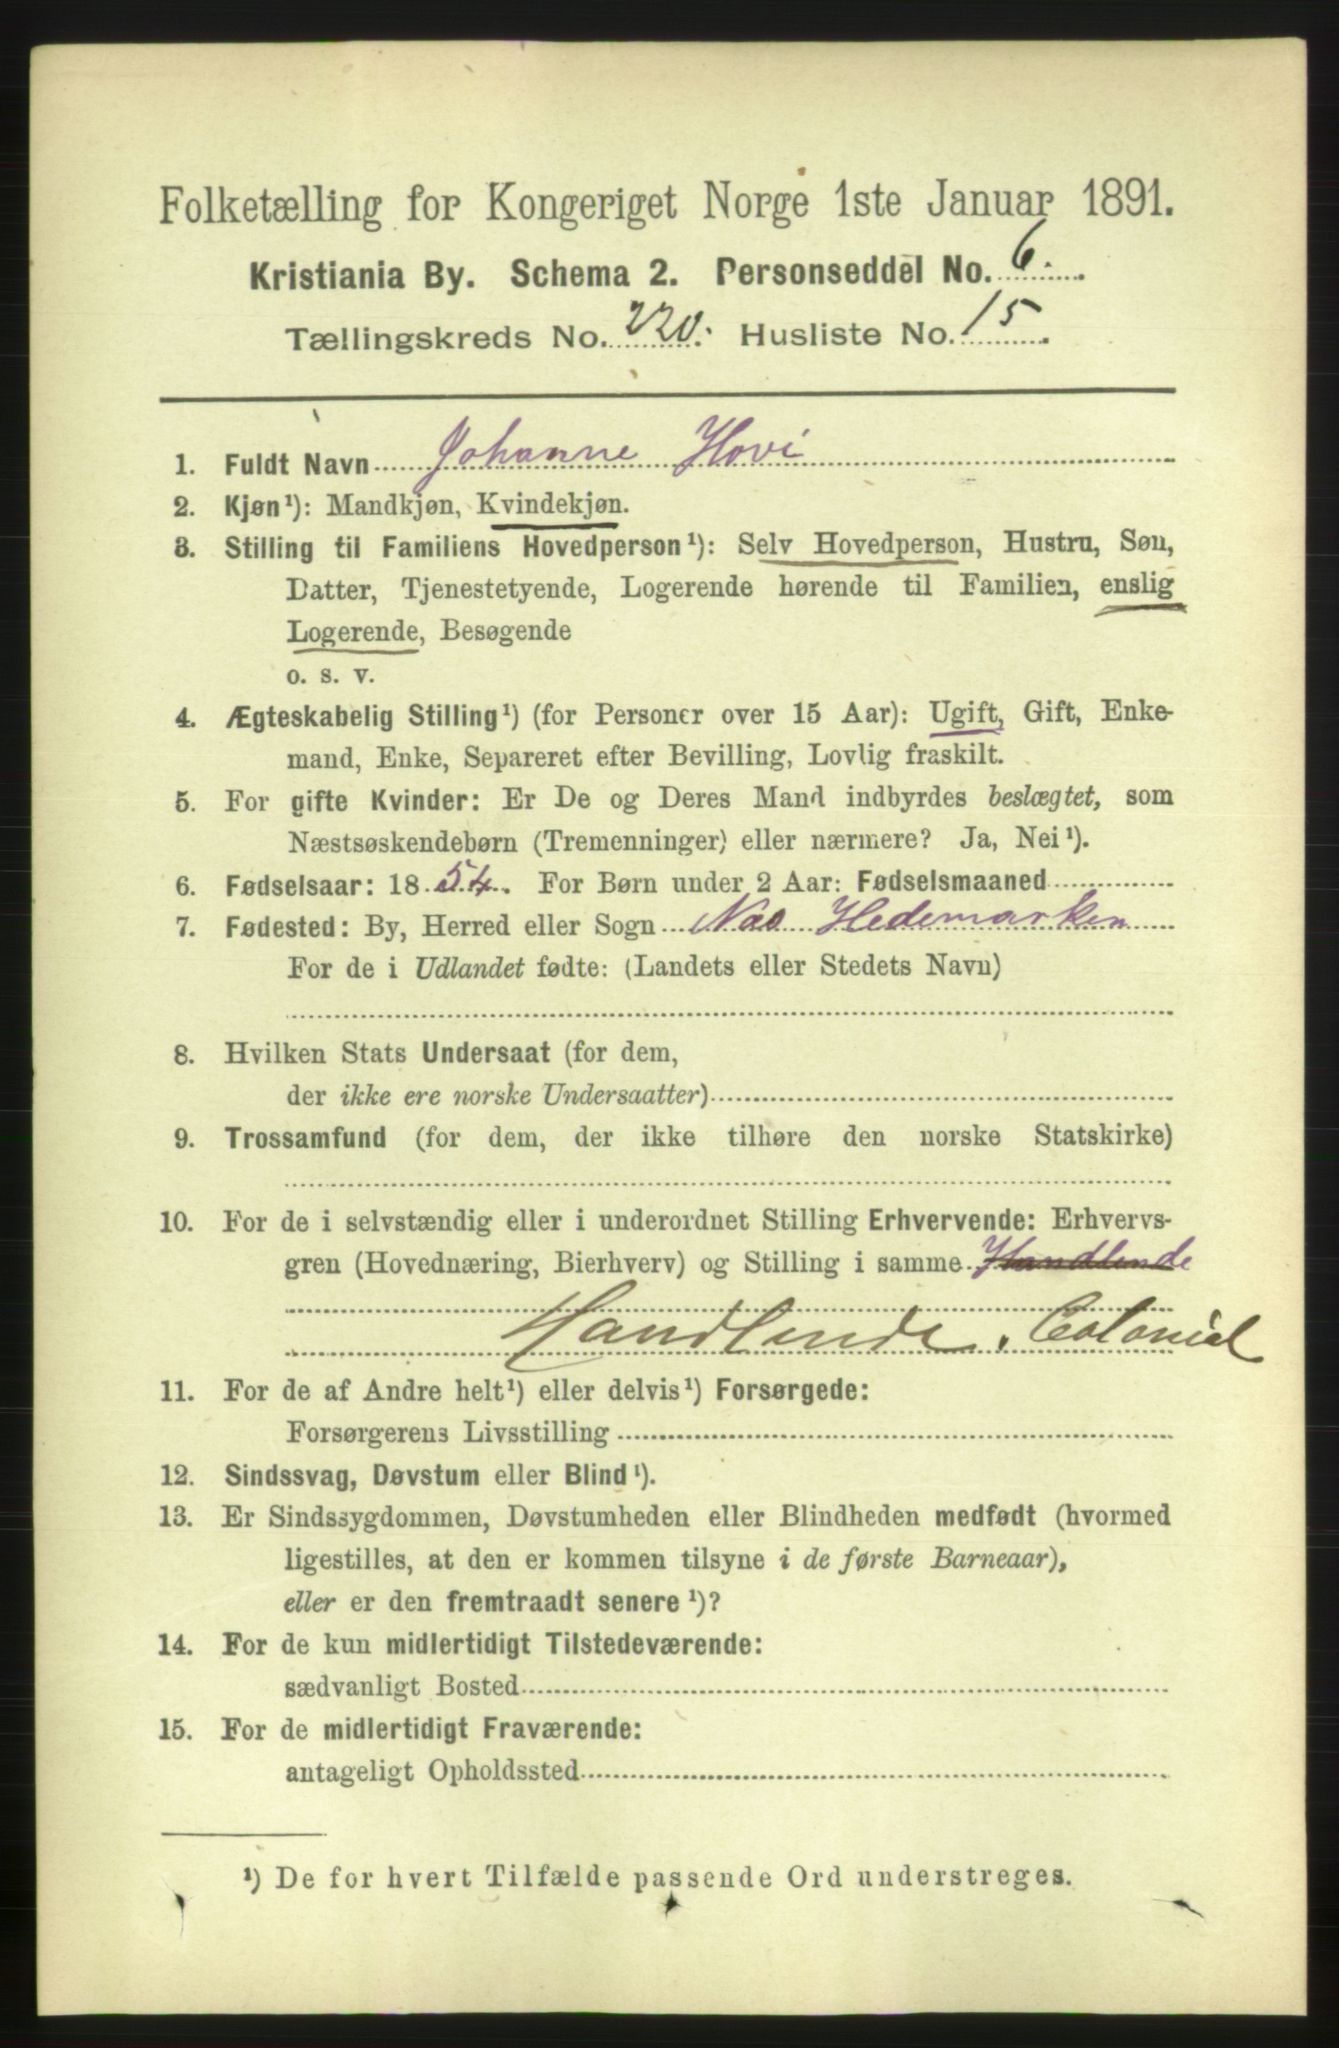 Folketælling for Kongeriget Norge 1ste Januar 1891.
Kristiania By. Schema 2. Personseddel No. 6.
Tællingskreds No. 220. Husliste No. 15.
1. Fuldt Navn Johanne Hovi
2. Kjøn¹): Mandkjøn, Kvindekjøn.
3. Stilling til Familiens Hovedperson¹): Selv Hovedperson, Hustru, Søn,
Datter, Tjenestetyende, Logerende hørende til Familien, enslig
Logerende, Besøgende
o. s. v.
4. Ægteskabelig Stilling¹) (for Personer over 15 Aar): Ugift, Gift, Enke-
mand, Enke, Separeret efter Bevilling, Lovlig fraskilt.
5. For gifte Kvinder: Er De og Deres Mand indbyrdes beslægtet, som
Næstsøskendebørn (Tremenninger) eller nærmere? Ja, Nei¹).
6. Fødselsaar: 1854. For Børn under 2 Aar: Fødselsmaaned
7. Fødested: By, Herred eller Sogn Næs Hedemarken
For de i Udlandet fødte: (Landets eller Stedets Navn)
8. Hvilken Stats Undersaat (for dem,
der ikke ere norske Undersaatter)
9. Trossamfund (for dem, der ikke tilhøre den norske Statskirke)
10. For de i selvstændig eller i underordnet Stilling Erhvervende: Erhvervs-
gren (Hovednæring, Bierhverv) og Stilling i samme Handlende
Handlende. Colonial
11. For de af Andre helt¹) eller delvis¹) Forsørgede:
Forsørgerens Livsstilling
12. Sindssvag, Døvstum eller Blind¹).
13. Er Sindssygdommen, Døvstumheden eller Blindheden medfødt (hvormed
ligestilles, at den er kommen tilsyne i de første Barneaar),
eller er den fremtraadt senere¹)?
14. For de kun midlertidigt Tilstedeværende:
sædvanligt Bosted
15. For de midlertidigt Fraværende:
antageligt Opholdssted
¹) De for hvert Tilfælde passende Ord understreges.